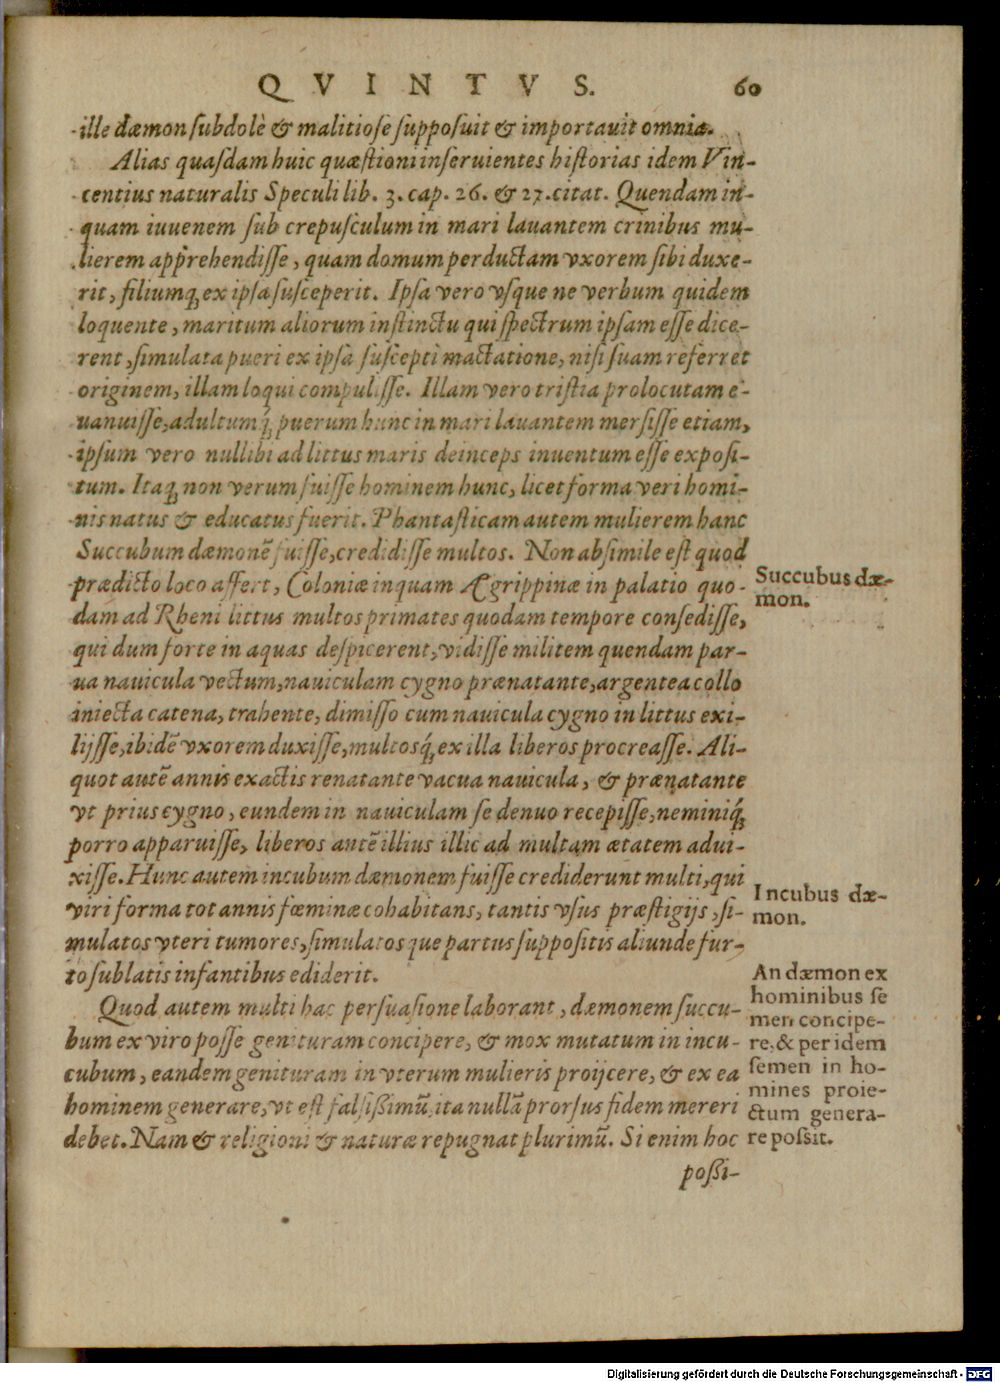 QVINTVS. 60
ille dæmon subdolè & malitiosè supposuit & importauit omnia.
Alias quasdam huic quæstioni inseruientes historias idem Vin-
centius naturalis Speculi lib. 3. cap. 26. & 27. citat. Quendam in-
quam iuuenem sub crepusculum in mari lauantem crinibus mu-
lierem apprehendisse, quam domum perductam vxorem sibi duxe-
rit, filiumq; ex ipsa susceperit. Ipsa vero vsque ne verbum quidem
loquente, maritum aliorum instinctu qui spectrum ipsam esse dice-
rent, simulata pueri ex ipsa suscepti mactatione, nisi suam referret
originem, illam loqui compulisse. Illam vero tristia prolocutam e-
uanuisse, adultumq́; puerum hunc in mari lauantem mersisse etiam,
ipsum vero nullibi ad littus maris deinceps inuentum esse exposi-
tum. Itaq; non verum fuisse hominem hunc, licet forma veri homi-
nis natus & educatus fuerit. Phantasticam autem mulierem hanc
Succubum dæmonē fuisse, credidisse multos. Non absimile est quod
prædicto loco affert, Coloniæ inquam Ægrippinæ in palatio quo-
dam ad Rheni littus multos primates quodam tempore consedisse,
qui dum forte in aquas despicerent, vidisse militem quendam par-
ua nauicula vectum, nauiculam cygno prænatante, argentea collo
iniecta catena, trahente, dimisso cum nauicula cygno in littus exi-
lijsse, ibidē vxorem duxisse, multosq́; ex illa liberos procreasse. Ali-
quot autē annis exactis renatante vacua nauicula, & prænatante
vt prius cygno, eundem in nauiculam se denuo recepisse, neminiq́;
porro apparuisse, liberos autē illius illic ad multam ætatem adui-
xisse. Hunc autem incubum dæmonem fuisse crediderunt multi, qui
viri forma tot annis fœminæ cohabitans, tantis vsus præstigijs, si-
mulatos vteri tumores, simulatosque partus suppositis aliunde fur-
to sublatis infantibus ediderit.
Quod autem multi hac persuasione laborant, dæmonem succu-
bum ex viro posse genituram concipere, & mox mutatum in incu-
cubum, eandem genituram in vterum mulieris proijcere, & ex ea
hominem generare, vt est falsißimū, ita nullā prorsus fidem mereri
debet. Nam & religioni & naturæ repugnat plurimū. Si enim hoc
poßi-
Succubus dæ-
mon.
Incubus dæ-
mon.
An dæmon ex
hominibus se
men concipe-
re, & per idem
semen in ho-
mines proie-
ctum genera-
re possit.
Digitalisierung gefördert durch die Deutsche Forschungsgemeinschaft - DFG